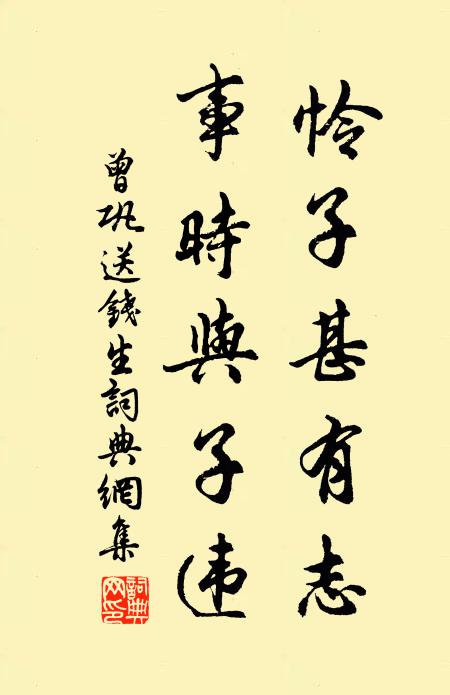 怜子甚有志
事時與子违
曾巩送錢生詞典網集
詞典
网印